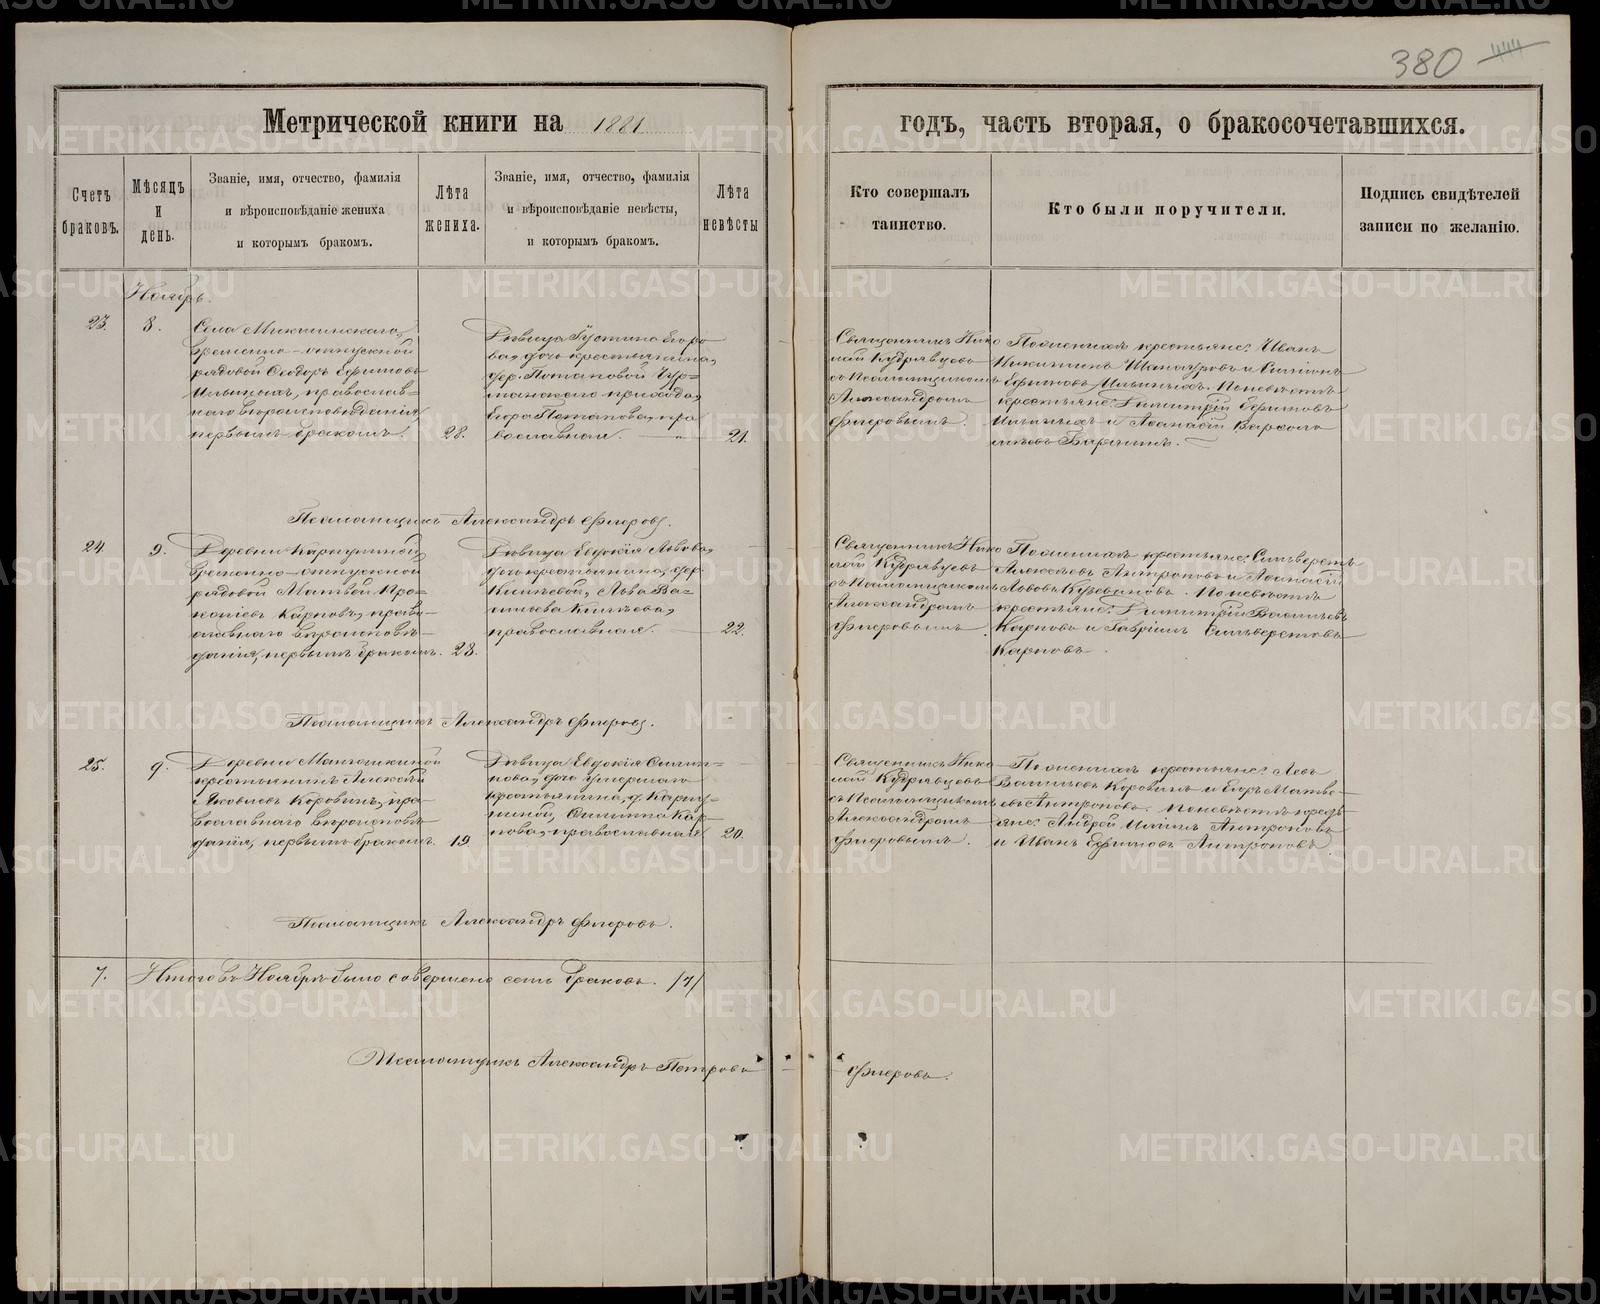 380
444
Метрической книги на 1881
годъ, часть вторая, о бракосочетавшихся.
Счетъ браковъ.
Мѣсяцъ и день.
Званіе, имя, отчество, фамилія
и вѣроисповѣданіе жениха
и которымъ бракомъ.
Лѣта жениха.
Званіе, имя, отчество, фамилія
и вѣроисповѣданіе невѣсты,
и которымъ бракомъ.
Лѣта невѣсты
Кто совершалъ
таинство.
Кто были поручители.
Подпись свидѣтелей
записи по желанію.
Ноябрь.
23.
8.
Села
временно-отпускной
рядовой Ѳеодоръ Ефимовъ
Ильиныхъ, православ-
наго вѣроисповѣданія,
первымъ бракомъ.
28.
Дѣвица Густина Егоро
ва, дочь крестьянина,
дер. Потаповой
прихода,
Егора Потапова, пра
вославная.
21.
Священникъ Нико
лай Кудрявцевъ
съ Псаломщикомъ
Александромъ
Флеровымъ.
По женихѣ крестьяне: Иванъ
Никитинъ и
Ефимовъ Ильиныхъ. По невѣстѣ
крестьяне: Димитрій Ефимовъ
Ильиныхъ и Аѳанасій Варѳоло
мѣевъ
Псаломщикъ Александръ Флеровъ.
24.
9.
Деревни
временно-отпускной
рядовой Матвей Про-
копіевъ Карповъ, право-
славнаго вѣроисповѣ-
данія, первымъ бракомъ.
23.
Дѣвица Евдокія Львова,
дочь крестьянина, дер.
Льва Ва-
сильева
православная.
22.
Священникъ Нико
лай Кудрявцевъ
съ Псаломщикомъ
Александромъ
Флеровымъ.
По женихѣ крестьяне: Сильверстъ
Алексѣевъ Антроповъ и Аѳанасій
Львовъ По невѣстѣ
крестьяне: Димитрій Васильевъ
Карповъ и Гавріилъ Сильверстовъ
Карповъ.
Псаломщикъ Александръ Флеровъ.
25.
9.
Деревни
крестьянинъ Алексѣй
Яковлевъ Коровинъ, пра
вославнаго вѣроисповѣ-
данія, первымъ бракомъ.
19
Дѣвица Евдокія
дочь умершаго
крестьянина, д.
Кар-
пова, православная
20.
Священникъ Нико
лай Кудрявцевъ
съ Псаломщикомъ
Александромъ
Флеровымъ.
По женихѣ крестьяне: Левъ
Васильевъ Коровинъ и Егоръ Матвѣ-
евъ Антроповъ. По невѣстѣ кресть
яне: Андрей Антроповъ
и Иванъ Ефимовъ Антроповъ.
Псаломщикъ Александръ Флеровъ.
7.
Итого въ Ноябрѣ было совершено семь браковъ. /7/
Псаломщикъ Александръ Петровъ
Флеровъ.
METRIKI.GASO-URAL.RU